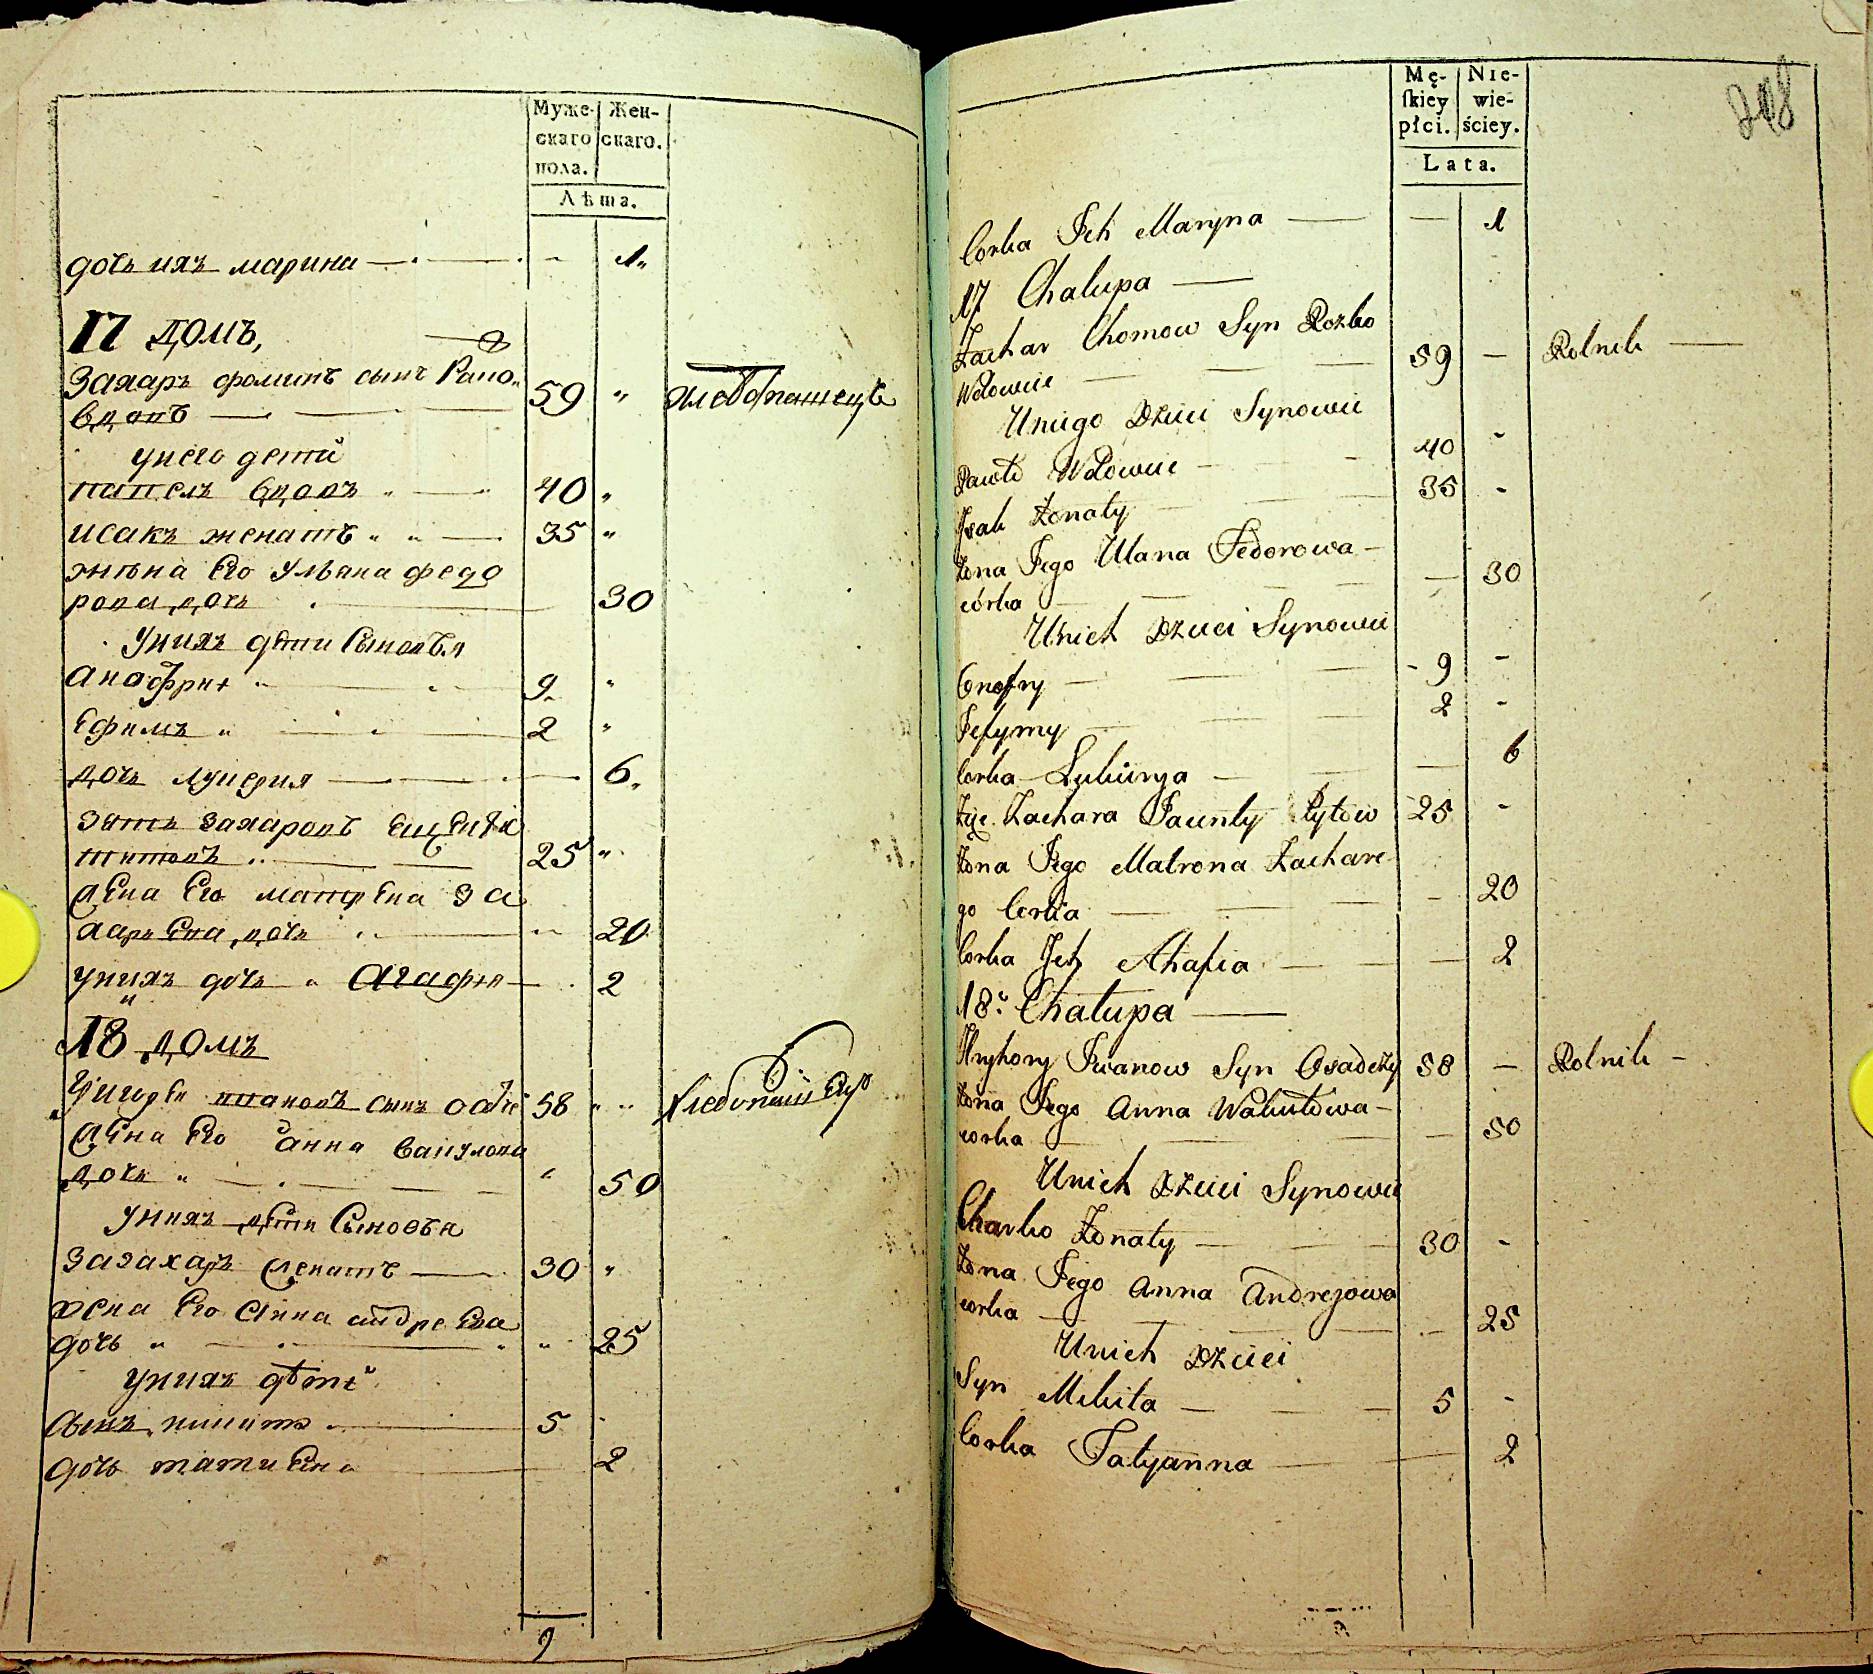 Муже-
скаго
пола.
Жен-
скаго.
Лѣта.
дочь ихъ марина 1
17 домъ,
Захаръ фоминъ сынъ
вдовъ 59 хлебопашецъ
унего дети
павелъ вдовъ 40
исакъ женатъ 35
жена Его Ульяна федо
рова дочь 30
унихъ дети Сыновья
анофри 9
Ефимъ 2
дочь лукерия 6
зять захаровъ
титовъ 25
жена Его матрЕна За
харьЕва дочь 20
унихъ дочь агафия 2
18 домъ
Григорей ивановъ сынъ 58 хлебопашЕцъ
жЕна Его анна
дочь 50
унихъ дЕти Сыновья
захаръ женатъ 30
жена Его анна андреЕва
дочь 25
унихъ дѣти
сынъ никита 5
дочь татиЕна 2
9
Mę-
ſkiey
płci.
Nie-
wie-
ściey.
Lata.
218
Corka Ich Maryna 1
17 Chalupa
Zachar Chomow Syn Rozko
Wdowiec 59 Rolnik
Uniego Dzieci Synowie
Pawło Wdowiec 40
Isak Żonaty 35
Żona Jego Ulana Fedorowa
córka 30
Unich Dzieci Synowie
Onofry 9
Jefymy 2
Corka Lukierya 6
Zięć Zachara Tytow 25
Żona Jego Matrona Zachare
go Corka 20
Corka Ich Ahafia 2
18 Chałupa
Hryhory Iwanow Syn Osadczy 58 Rolnik
Żona Jego Anna Wakułowa
corka 50
Unich Dzieci Synowie
Charko Żonaty 30
Żona Jego Anna Andrejowa
corka 25
Unich Dzieci
Syn Mikita 5
Corka Tatyanna 2